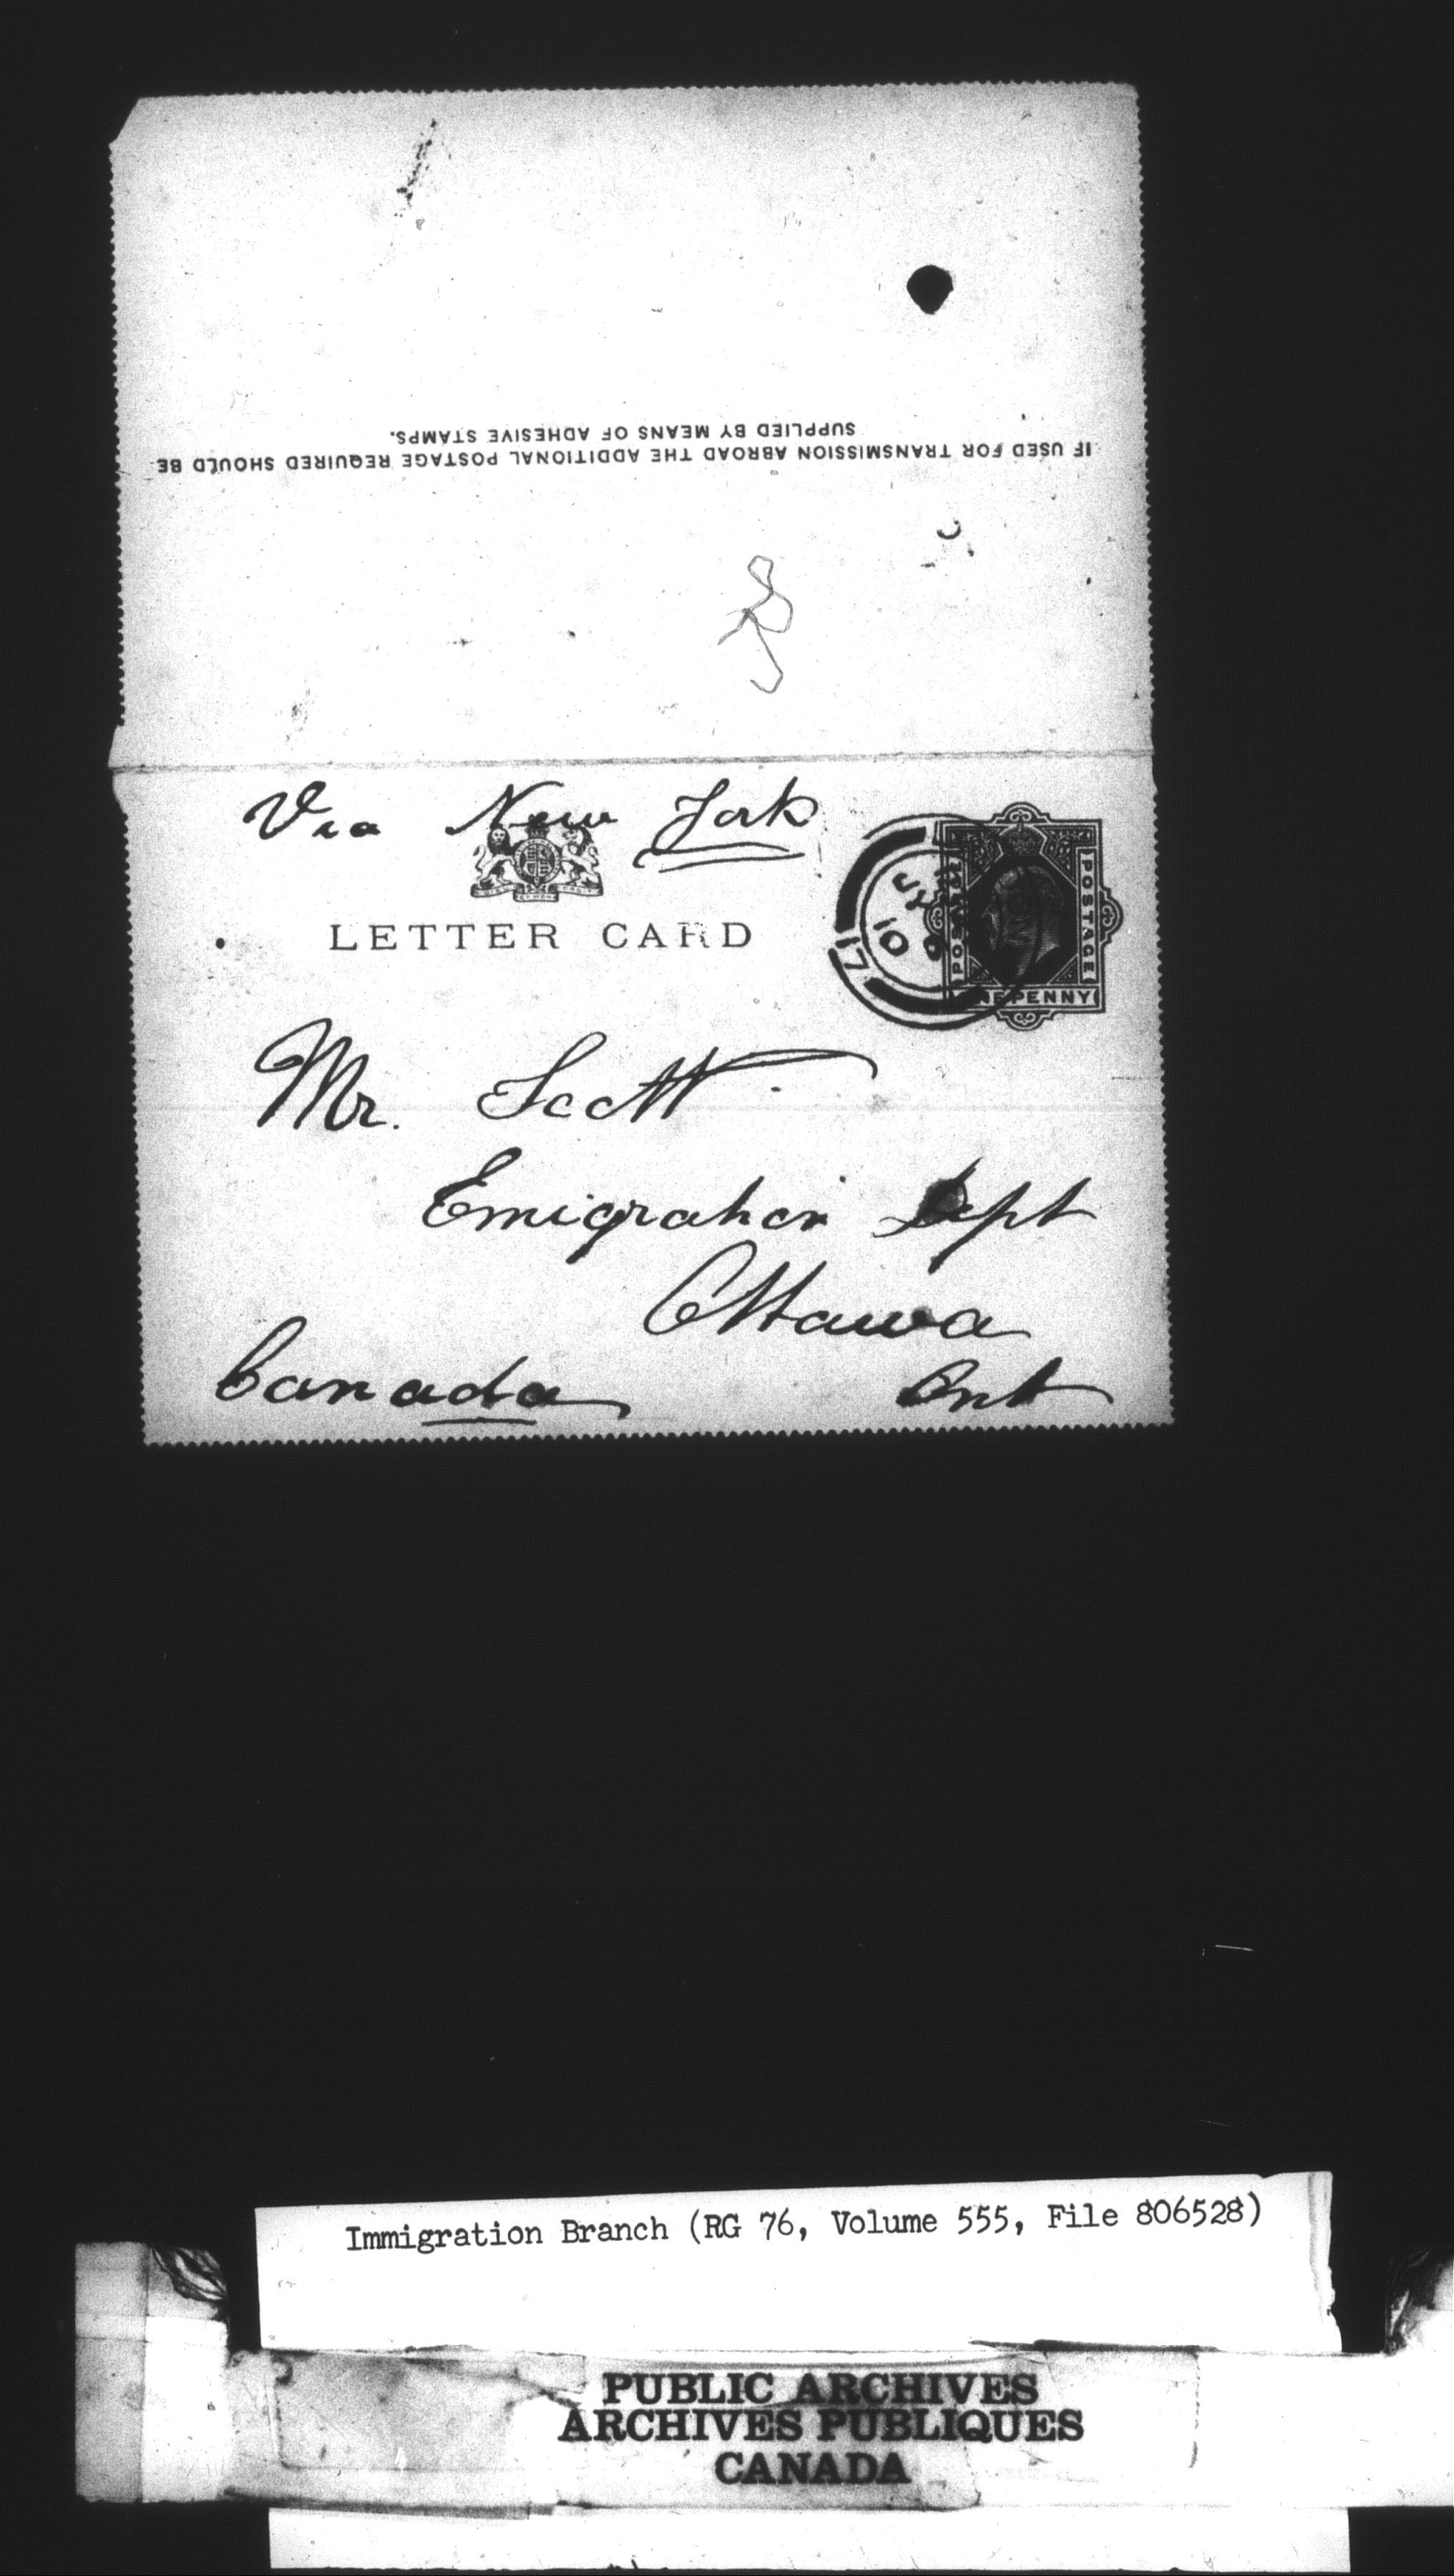 IF USED FOR TRANSMISSION ABROAD THE ADDITIONAL POSTAGE REQUIRED SHOULD BE
SUPPLIED BY MEANS OF ADHESIVE STAMPS.
Via New York
LETTER CARD
POSTAGE
POSTAGE
ONE PENNY
17
10
Mr. Scott
Emigration Dept
Ottawa
Canada Ont
Immigration Branch (RG 76, Volume 555, File 806528)
PUBLIC ARCHIVES
ARCHIVES PUBLIQUES
CANADA